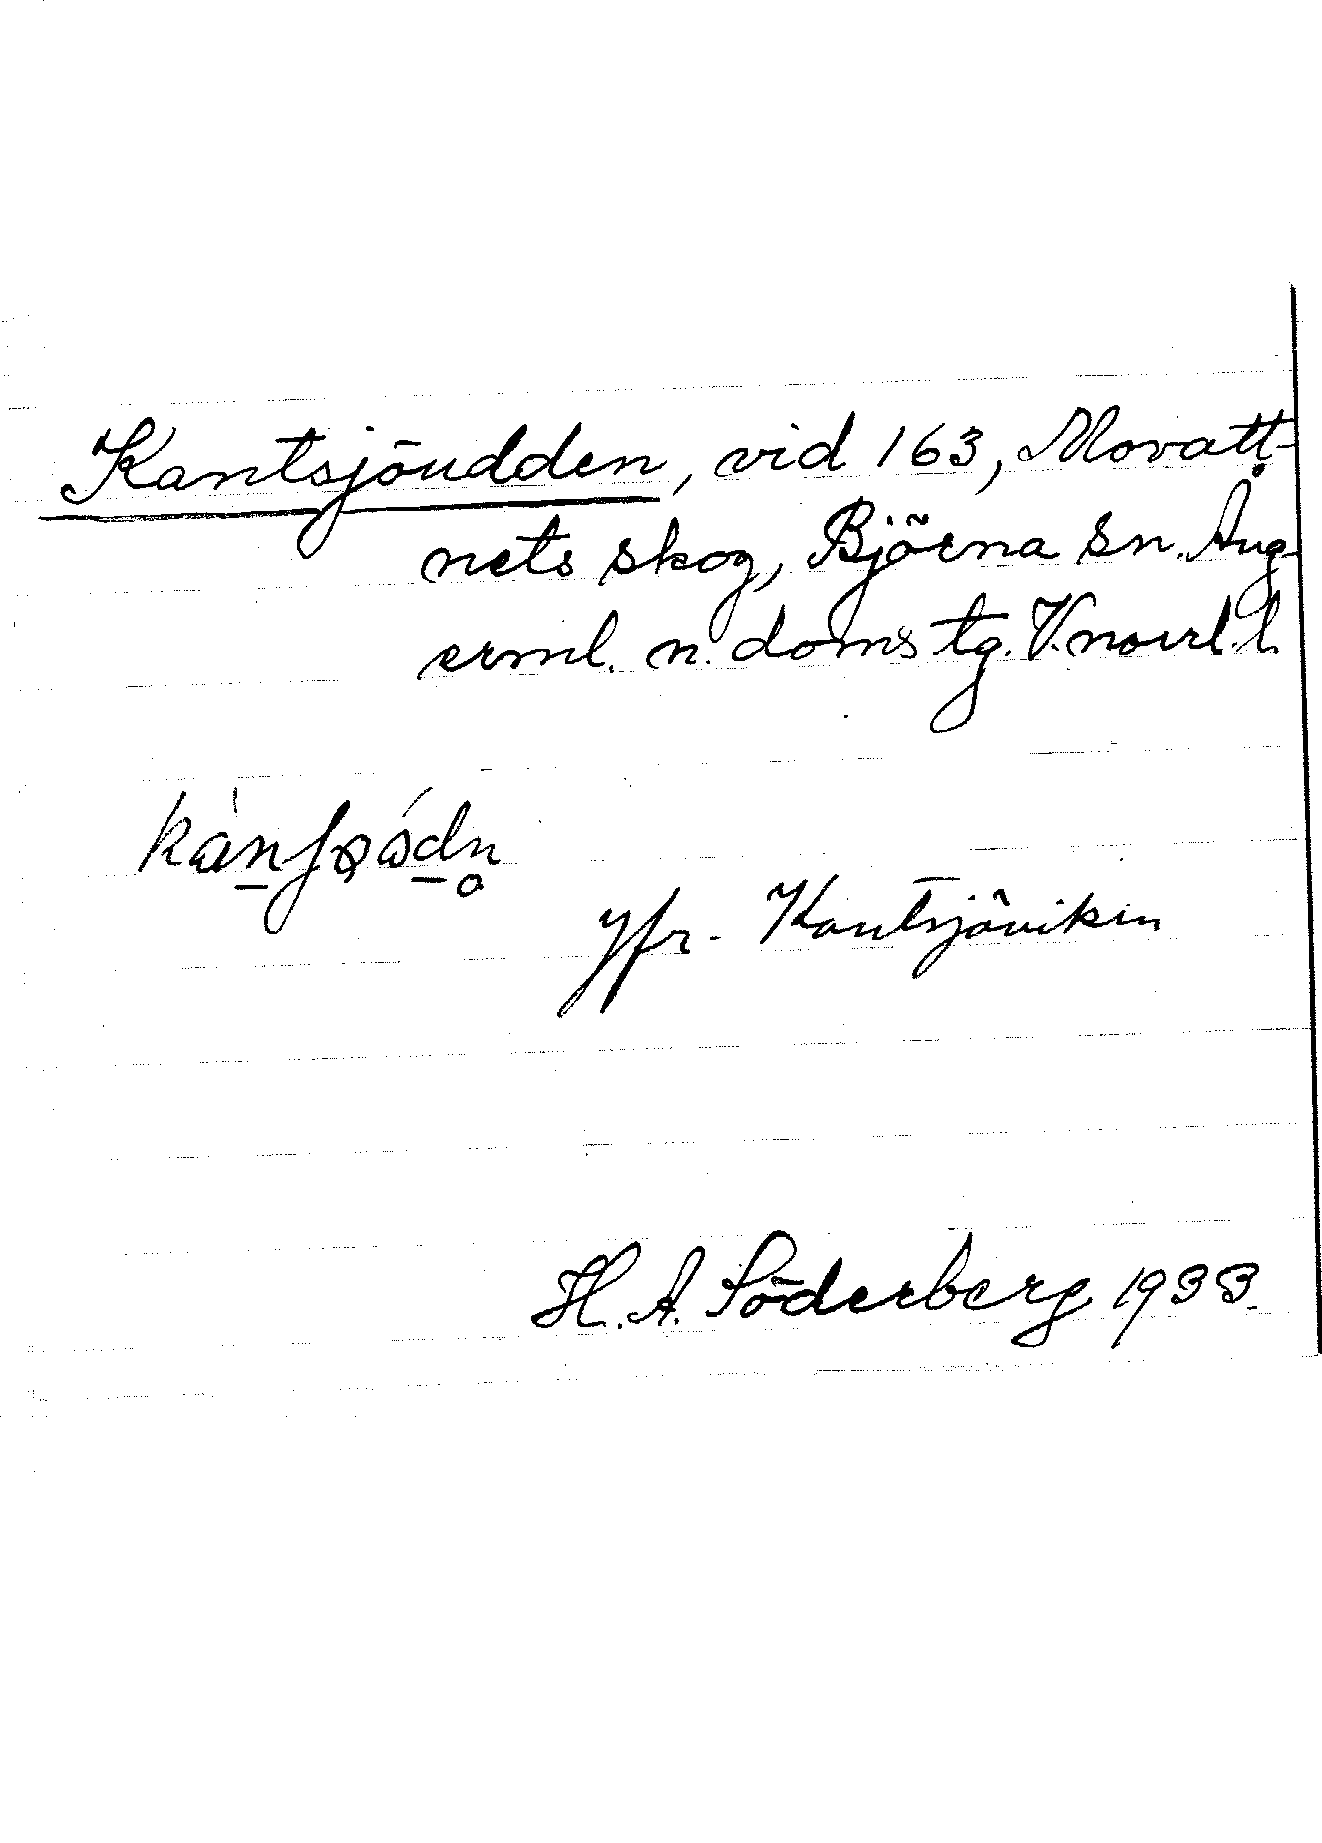 Kantsjöudden, vid 163, Movatt-
nets skog, Björna sn. Ång-
erml. n. doms tg. V.norrl. l.
Jfr. Kantsjöviken
H. A. Söderberg 1933.